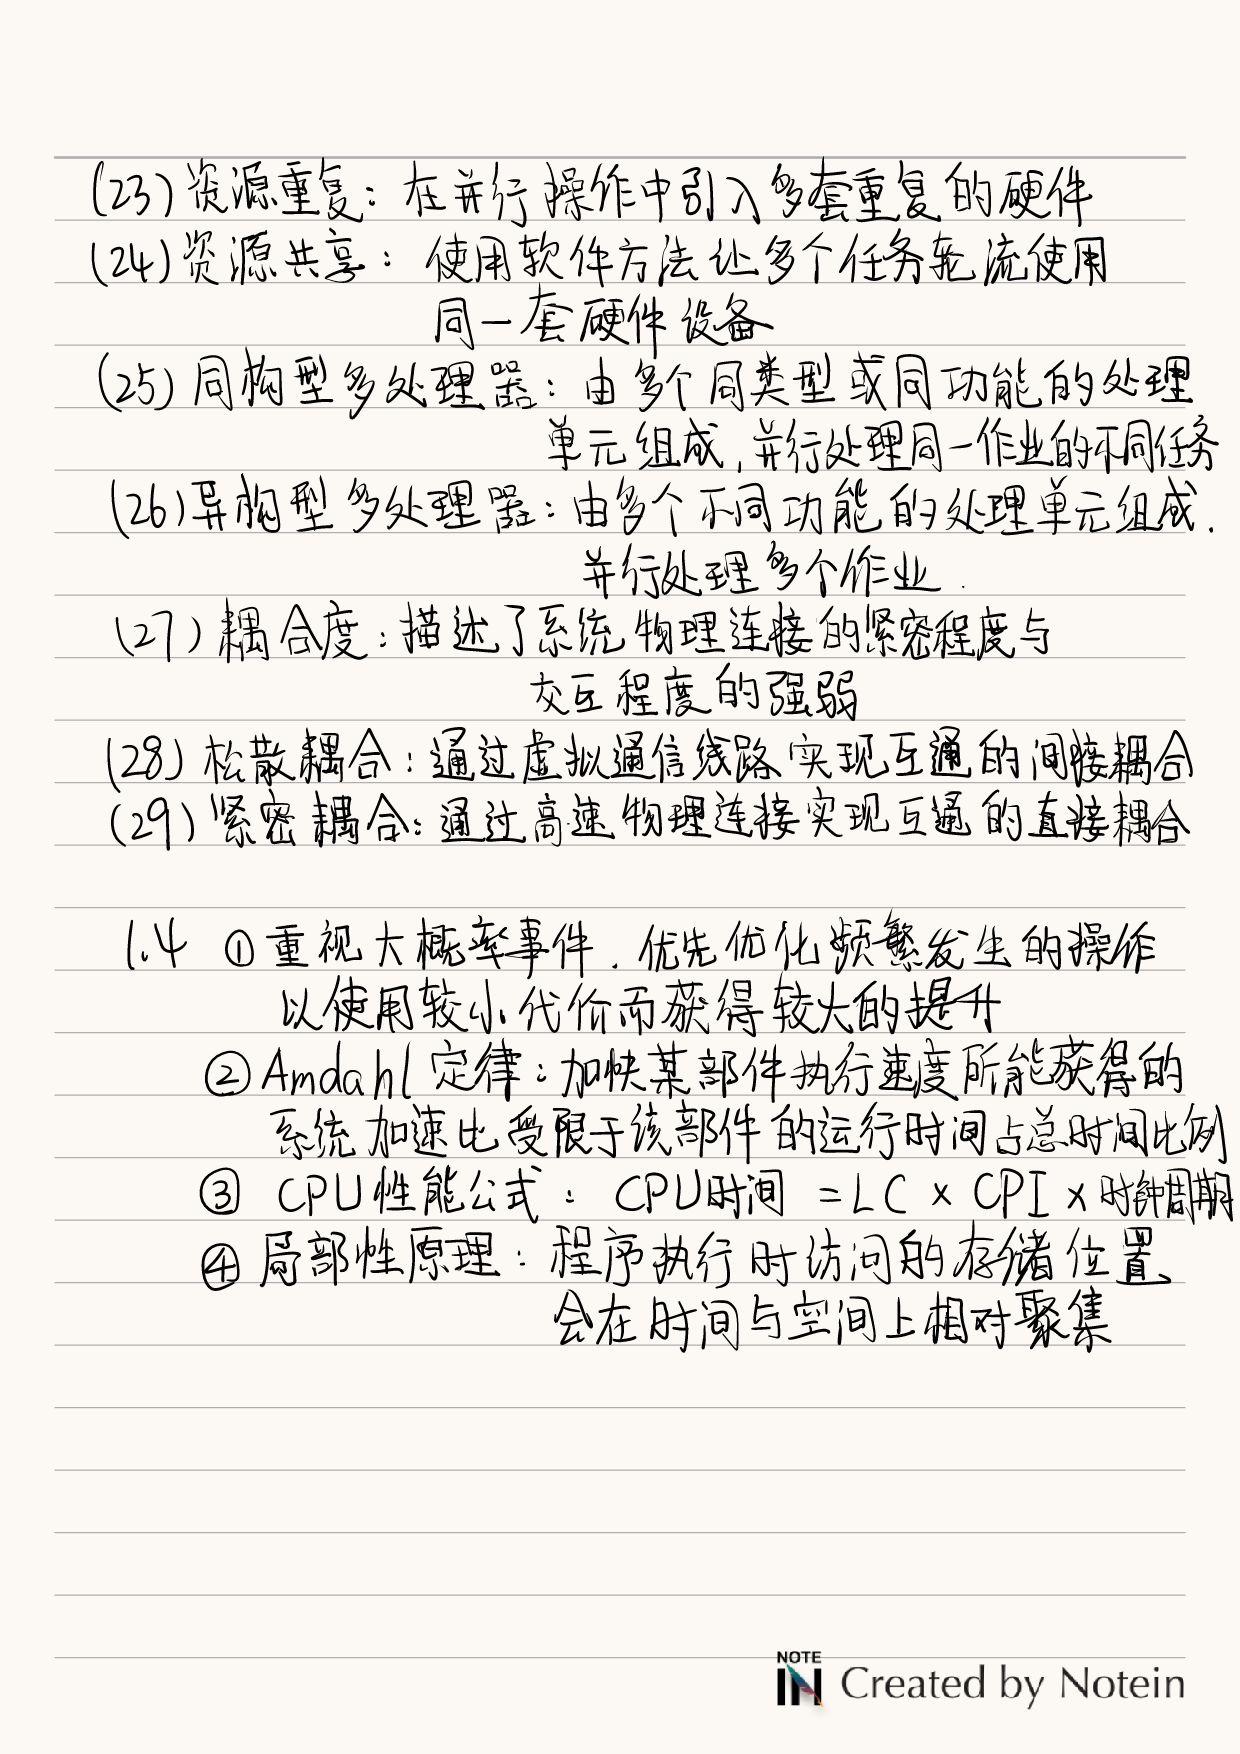 (23) 资源重复：在并行操作中引入多套重复的硬件
(24) 资源共享：使用软件方法让多个任务轮流使用
同一套硬件设备
(25) 同构型多处理器：由多个同类型或同功能的处理
单元组成，并行处理同一作业的不同任务
(26) 异构型多处理器：由多个不同功能的处理单元组成，
并行处理多个作业．
(27) 耦合度：描述了系统物理连接的紧密程度与
交互程度的强弱
(28) 松散耦合：通过虚拟通信线路实现互通的间接耦合
(29) 紧密耦合：通过高速物理连接实现互通的直接耦合
1.4 ①重视大概率事件．优先优化频繁发生的操作
以使用较小代价而获得较大的提升
②Amdahl定律：加快某部件执行速度所能获得的
系统加速比受限于该部件的运行时间占总时间比例
③ CPU性能公式：CPU时间 = LC × CPI × 时钟周期
④局部性原理：程序执行时访问的存储位置
会在时间与空间上相对聚集
NOTE
IN Created by Notein